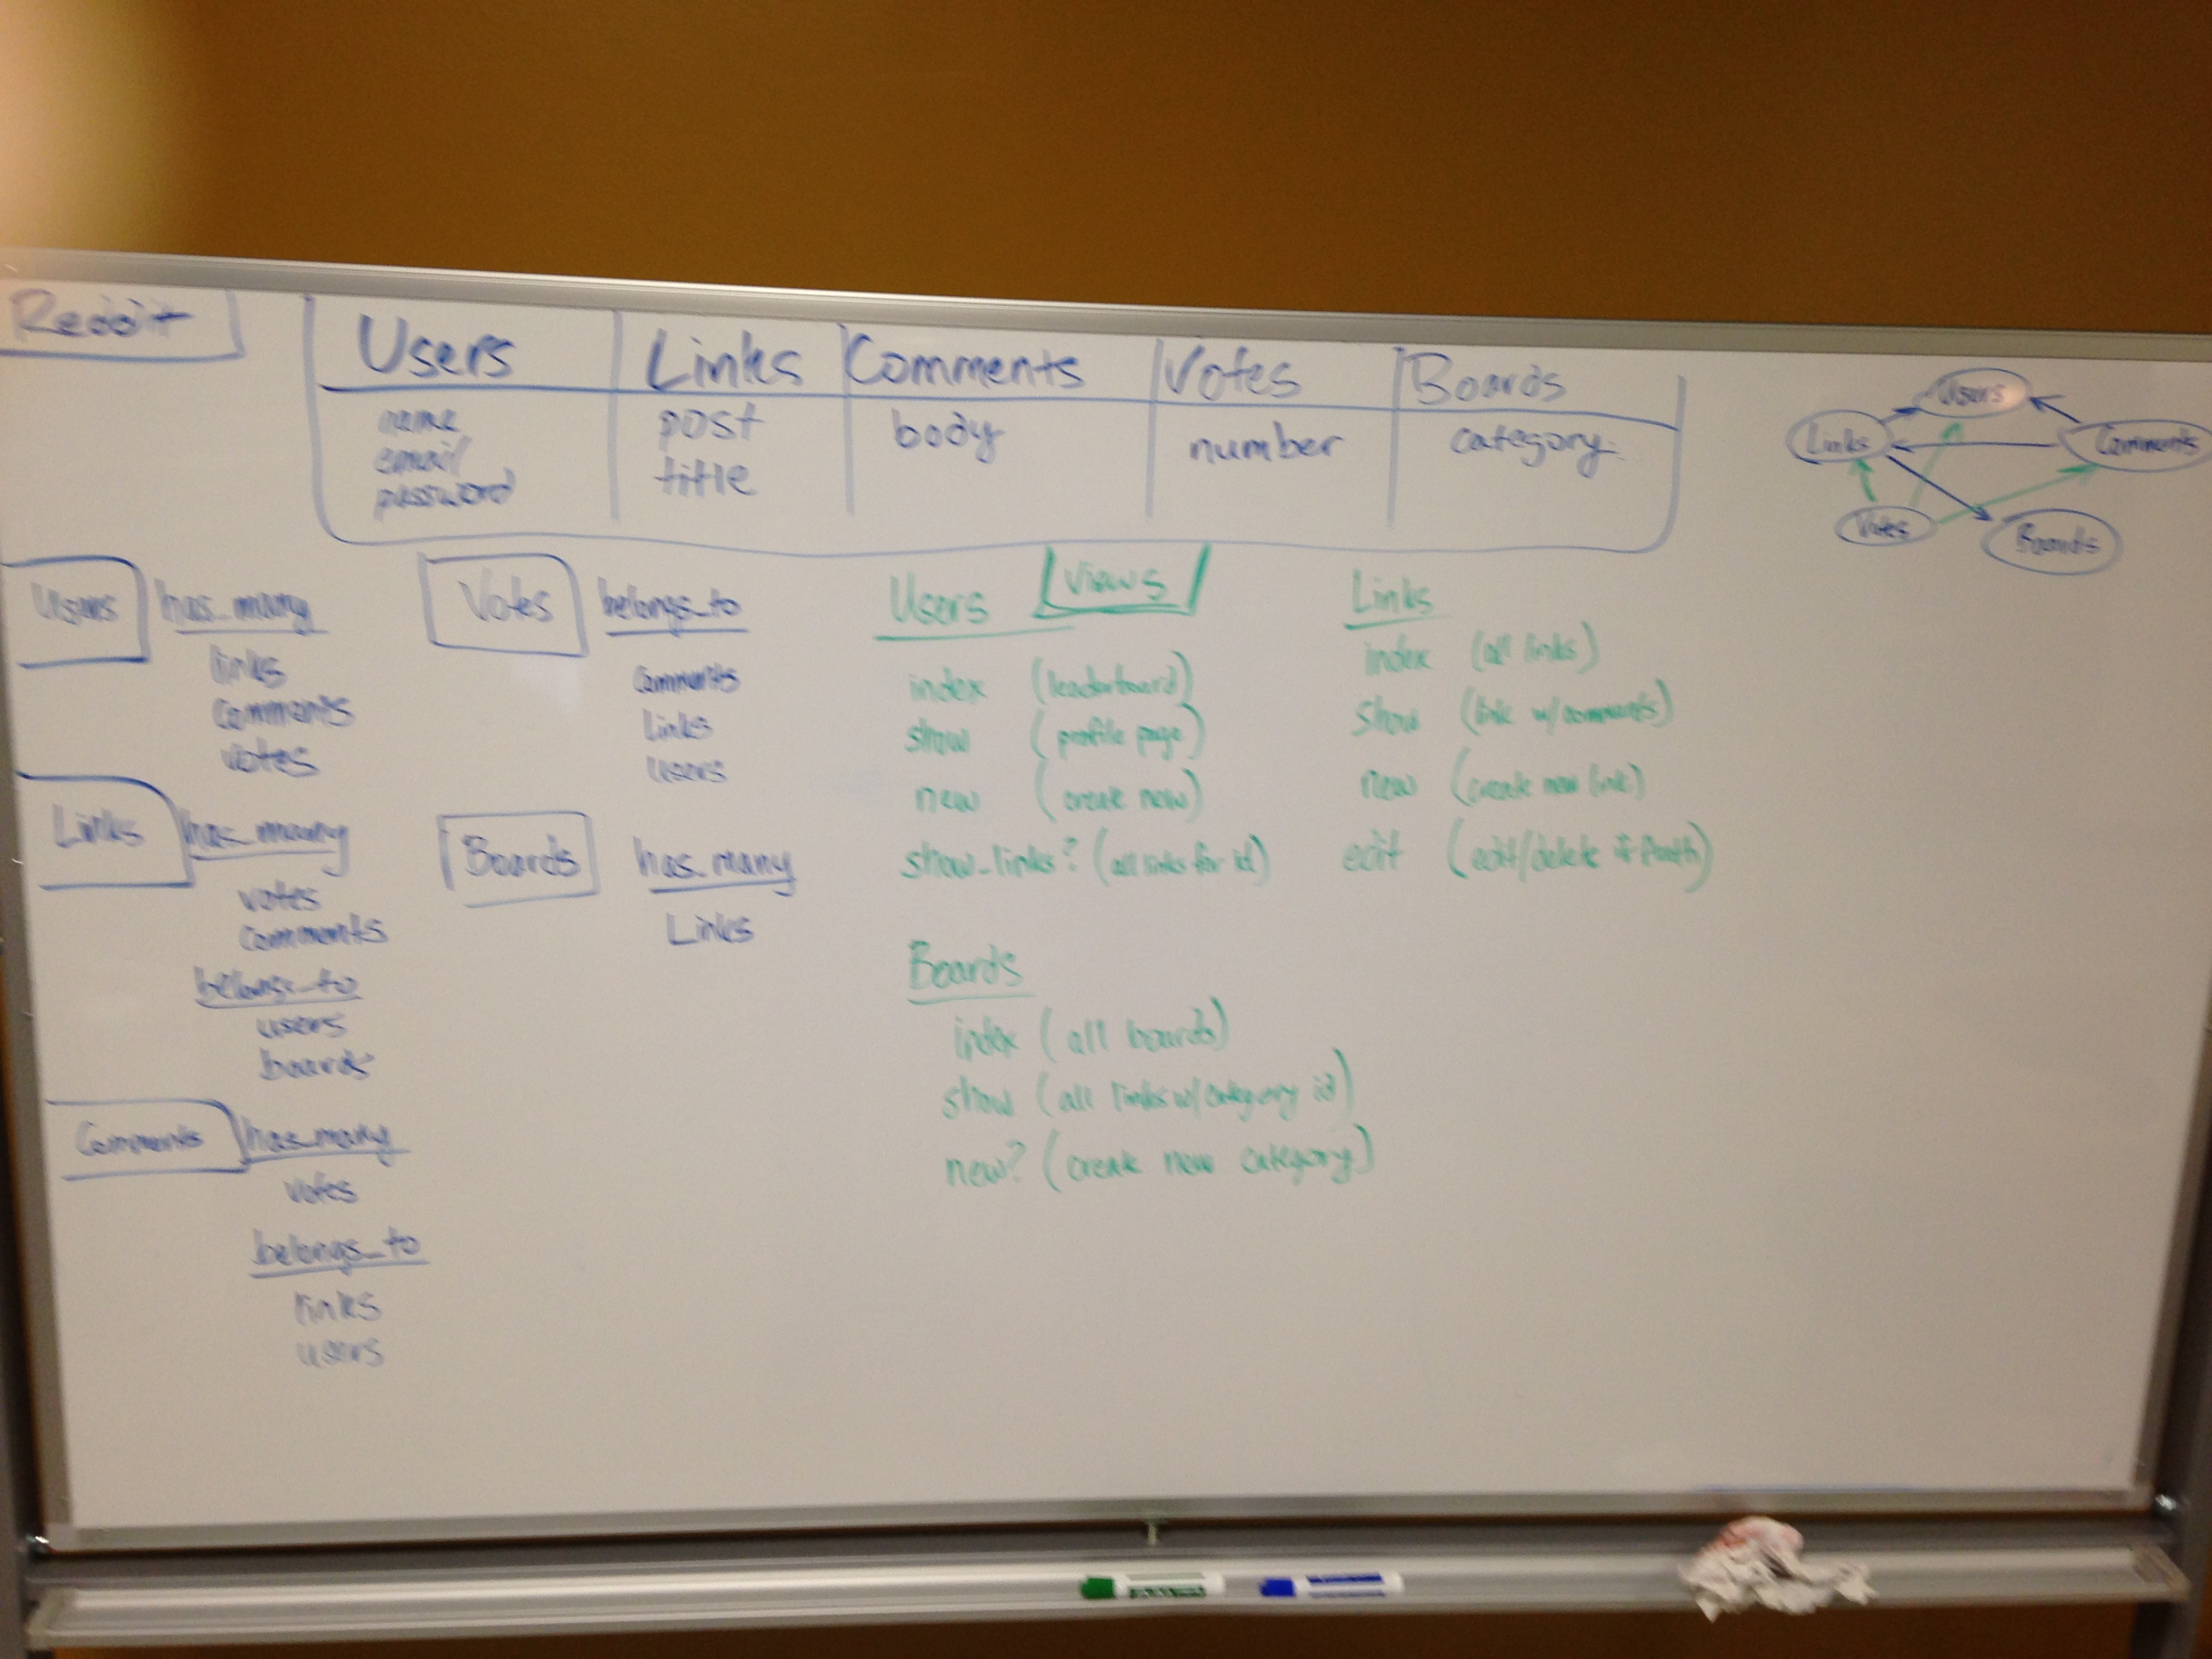 Reddit
Users Links Comments Votes Boards
name
email
password
post
title
body
number
category
Users
Links
Comments
Votes
Boards
Users has_many
links
comments
votes
Links has_many
votes
comments
belongs_to
users
boards
Comments has_many
votes
belongs_to
links
users
Votes belongs_to
comments
links
users
Boards has_many
Links
Views
Users
index (leaderboard)
show (profile page)
new (create new)
show_links? (all links for id)
Links
index (all links)
show (link w/comments)
new (create new link)
edit (edit/delete
Boards
index (all boards)
show (all links w/category id)
new? (create new category)